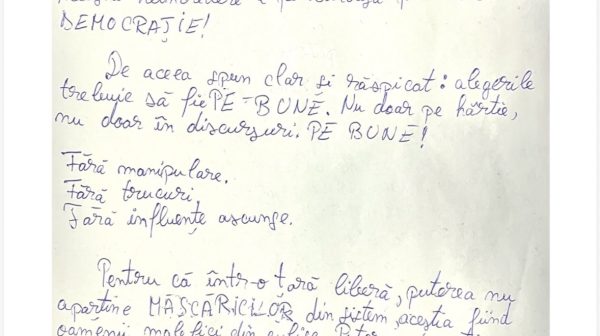 DEMOCRAȚIE!
De aceea spun clar si răspicat: alegerile
trebuie să fie PE-BUNE. Nu doar pe hârtie,
nu doar în discursuri. PE BUNE!
Fără manipulare.
Fără trucuri,
Fără influențe ascunse.
Pentru că într-o țară liberă, puterea nu
apartine MĂSCĂRICILOR din sistem, aceștia fiind
oamenii malefici din